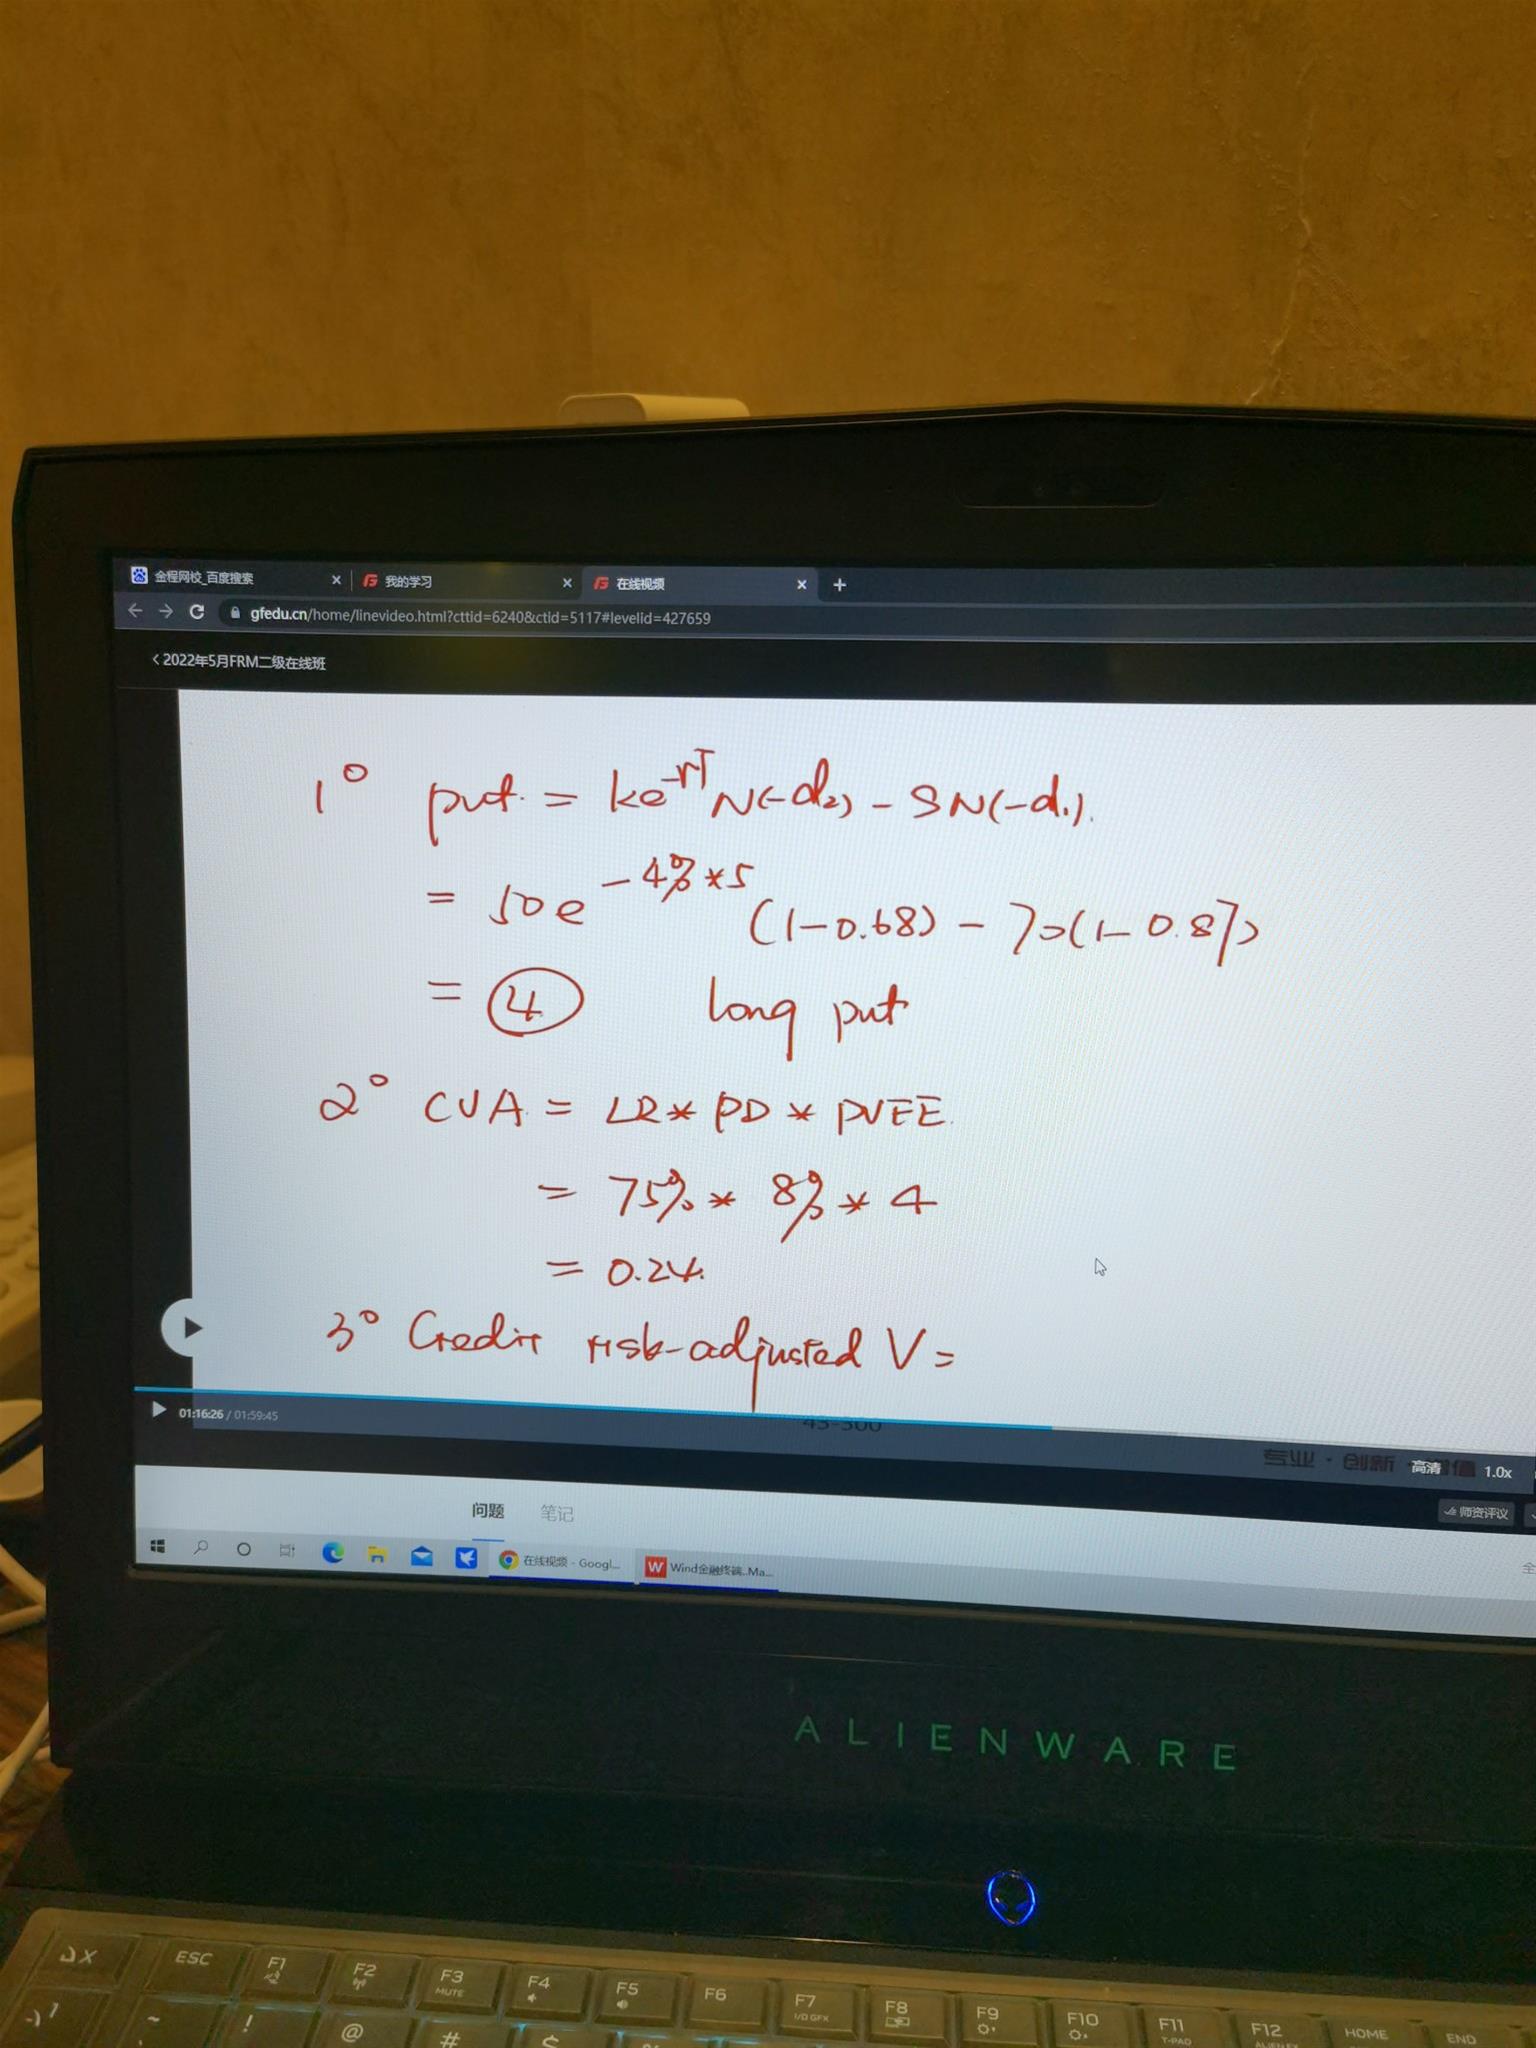 金程网校_百度搜索
我的学习
在线视频
gfedu.cn/home/linevideo.html?cttid=6240&ctid=5117#levelid=427659
< 2022年5月FRM二级在线班
1° put = ke^-rT N(-d2) - SN(-d1).
= 50e^-4%*5 (1-0.68) - 70(1-0.87)
= 4 long put
2° CVA = LR * PD * PVEE
= 75% * 8% * 4
= 0.24
3° Credit risk-adjusted V =
01:16:26 / 01:59:45
43-300
专业 · 创新 · 增值
高清 1.0x
问题 笔记
师资评议
在线视频 - Googl...
Wind金融终端..Ma...
ALIENWARE
ESC F1 F2 F3 F4 F5 F6 F7 F8 F9 F10 F11 F12 HOME END
MUTE I/O GFX T-PAD
~ ! @ #